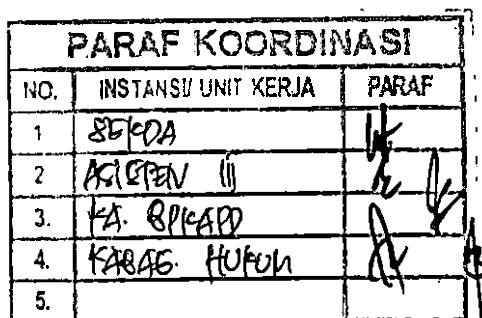 PARAF KOORDINASI
NO. INSTANSI/ UNIT KERJA PARAF
1 SEKDA
2 ASISTEN II
3. KA. BPKAPD
4. KABAG. HUKUM
5.